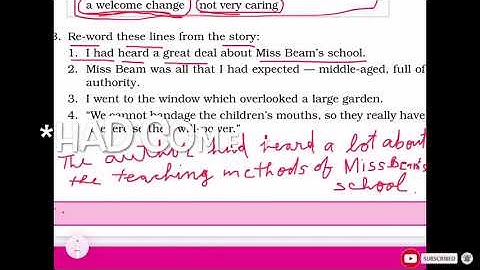 a welcome change not very caring
3. Re-word these lines from the story:
1. I had heard a great deal about Miss Beam's school.
2. Miss Beam was all that I had expected — middle-aged, full of
authority.
3. I went to the window which overlooked a large garden.
4. "We cannot bandage the children's mouths, so they really have
*HAD COME
The author had heard a lot about
the teaching methods of Miss Beam's
school.
SUBSCRIBED